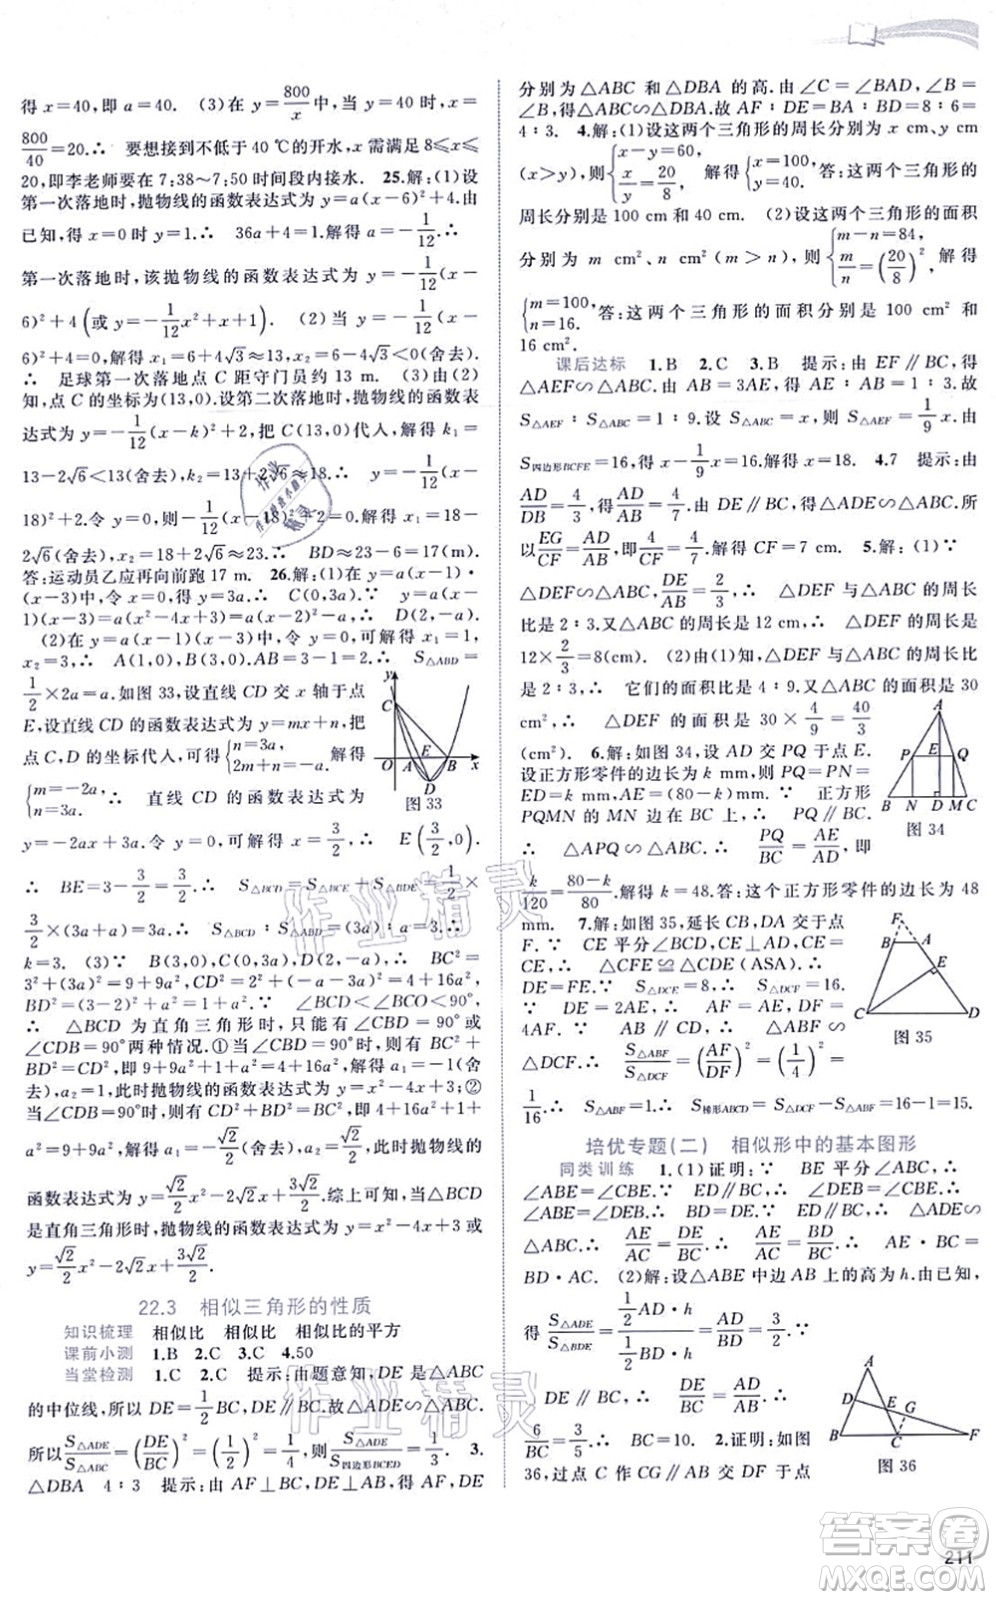 得 x=40,即 a=40. (3)在 y=800/x 中,当 y=40 时,x=
800/40=20.∴ 要想接到不低于 40 ℃的开水,x 需满足 8≤x≤
20,即李老师要在 7:38~7:50 时间段内接水. 25.解:(1)设
第一次落地时,抛物线的函数表达式为 y=a(x-6)²+4.由
已知,得 x=0 时 y=1.∴ 36a+4=1.解得 a=-1/12.∴
第一次落地时,该抛物线的函数表达式为 y=-1/12(x-
6)²+4(或 y=-1/12x²+x+1). (2)当 y=0 时,-1/12(x-
6)²+4=0.解得 x₁=6+4√3≈13,x₂=6-4√3<0(舍去).
∴ 足球第一次落地点 C 距守门员约 13 m. (3)由(2)
知,点 C 的坐标为(13,0).设第二次落地时,抛物线的函数表
达式为 y=-1/12(x-k)²+2,把 C(13,0)代入,解得 k₁=
13-2√6<13(舍去),k₂=13+2√6≈18.∴ y=-1/12(x-
18)²+2.令 y=0,则0=-1/12(x-18)²+2.解得 x₁=18-
2√6(舍去),x₂=18+2√6≈23.∴ BD≈23-6=17(m).
答:运动员乙应再向前跑 17 m. 26.解:(1)∵ y=a(x-1)·
(x-3)=ax²-4ax+3a.∴ C(0,3a).∵ y=a(x-
1)(x-3)=a(x²-4x+3)=a(x-2)²-a,∴ D(2,-a).
(2)在 y=a(x-1)(x-3)中,令 y=0,可解得 x₁=1,
x₂=3,∴ A(1,0),B(3,0).∴ AB=3-1=2.∴ S△ABD=
1/2×2a=a.如图 33,设直线 CD 交 x 轴于点
E,设直线 CD 的函数表达式为 y=mx+n,把
点 C,D 的坐标代入,可得{n=3a, 2m+n=-a. 解得
{m=-2a, n=3a. ∴ 直线 CD 的函数表达式为
y=-2ax+3a.令 y=0,可解得 x=3/2.∴ E(3/2,0).
∴ BE=3-3/2=3/2.∴ S△BCD=S△BCE+S△BDE=1/2×
3/2×(3a+a)=3a.∴ S△BCD∶S△ABD=(3a)∶a=3.∴
k=3. (3)∵ B(3,0),C(0,3a),D(2,-a),∴ BC²=
3²+(3a)²=9+9a²,CD²=2²+(-a-3a)²=4+16a²,
BD²=(3-2)²+a²=1+a².∵ ∠BCD<∠BCO<90°,
∴ △BCD 为直角三角形时,只能有∠CBD=90°或
∠CDB=90°两种情况.①当∠CBD=90°时,有 BC²+
BD²=CD²,即 9+9a²+1+a²=4+16a²,解得 a₁=-1(舍
去),a₂=1,此时抛物线的函数表达式为 y=x²-4x+3;②
当∠CDB=90°时,有CD²+BD²=BC²,即 4+16a²+1+
a²=9+9a²,解得a₁=-√2/2(舍去),a₂=√2/2,此时抛物线的
函数表达式为 y=√2/2x²-2√2x+3√2/2.综上可知,当△BCD
是直角三角形时,抛物线的函数表达式为 y=x²-4x+3 或
y=√2/2x²-2√2x+3√2/2.
y C O A E B x D
图 33
22.3 相似三角形的性质
知识梳理 相似比 相似比 相似比的平方
课前小测 1.B 2.C 3.C 4.50
当堂检测 1.C 2.C 提示:由题意知,DE 是△ABC
的中位线,所以 DE=1/2BC,DE∥BC.故△ADE∽△ABC.
所以S△ADE/S△ABC=(DE/BC)²=(1/2)²=1/4,则S△ADE/S四边形BCED=1/3. 3.
△DBA 4∶3 提示:由 AF⊥BC,DE⊥AB,得 AF,DE
分别为△ABC 和△DBA 的高.由∠C=∠BAD,∠B=
∠B,得△ABC∽△DBA.故 AF∶DE=BA∶BD=8∶6=
4∶3. 4.解:(1)设这两个三角形的周长分别为 x cm、y cm
(x>y).则{x-y=60, x/y=20/8. 解得{x=100, y=40. 答:这两个三角形的
周长分别是 100 cm 和 40 cm. (2)设这两个三角形的面积
分别为 m cm²、n cm²(m>n),则{m-n=84, m/n=(20/8)². 解得
{m=100, n=16. 答:这两个三角形的面积分别是 100 cm² 和
16 cm².
课后达标 1.B 2.C 3.B 提示:由 EF∥BC,得
△AEF∽△ABC.由 AB=3AE,得 AE∶AB=1∶3.故
S△AEF∶S△ABC=1∶9.设 S△ABC=x,则 S△AEF=1/9x.由
S四边形BCFE=16,得 x-1/9x=16.解得 x=18. 4.7 提示:由
AD/DB=4/3,得AD/AB=4/7.由 DE∥BC,得△ADE∽△ABC.所
以EG/CF=AD/AB,即4/CF=4/7.解得 CF=7 cm. 5.解:(1)∵
△DEF∽△ABC,DE/AB=2/3,∴ △DEF 与△ABC 的周长
比是 2∶3.又△ABC 的周长是 12 cm,∴ △DEF 的周长是
12×2/3=8(cm). (2)由(1)知,△DEF 与△ABC 的周长比
是 2∶3,∴ 它们的面积比是 4∶9.又△ABC 的面积是 30
cm²,∴ △DEF 的面积是 30×4/9=40/3
(cm²). 6.解:如图 34,设 AD 交 PQ 于点 E.
设正方形零件的边长为 k mm,则 PQ=PN=
DE=k mm,AE=(80-k)mm.∵ 正方形
PQMN 的 MN 边在 BC 上,∴ PQ∥BC.
∴ △APQ∽△ABC.∴ PQ/BC=AE/AD,即
k/120=80-k/80.解得 k=48.答:这个正方形零件的边长为 48
mm. 7.解:如图 35,延长 CB,DA 交于点
F.∵ CE 平分∠BCD,CE⊥AD,
∴ △CFE≌△CDE(ASA).∴
DE=FE.∵ S△DCE=8,∴ S△DCF=16.
∵ DE=2AE,∴ AF=AE,DF=
4AF.∵ AB∥CD,∴ △ABF∽
△DCF.∴ S△ABF/S△DCF=(AF/DF)²=(1/4)²=
1/16.∴ S△ABF=1.∴ S梯形ABCD=S△DCF-S△ABF=16-1=15.
A P E Q B N D M C
图 34
F B A E C D
图 35
培优专题(二) 相似形中的基本图形
同类训练 1.(1)证明:∵ BE 平分∠ABC,∴
∠ABE=∠CBE.∵ ED∥BC,∴ ∠DEB=∠CBE.∴
∠ABE=∠DEB.∴ BD=DE.∵ ED∥BC,∴ △ADE∽
△ACB.∴ AE/AC=DE/BC.∴ AE/AC=BD/BC.∴ AE·BC=
BD·AC. (2)解:设△ABE 中边 AB 上的高为 h.由已知,
得 S△ADE/S△BDE=(1/2AD·h)/(1/2BD·h)=AD/BD=3/2.∵ DE∥BC,
∴ △ADE∽△ABC.∴ DE/BC=AD/AB.∴
6/BC=3/5.∴ BC=10. 2.证明:如图
36,过点 C 作 CG∥AB 交 DF 于点
A D E G B C F
图 36
作业精灵
答案圈
MXQE.COM
211